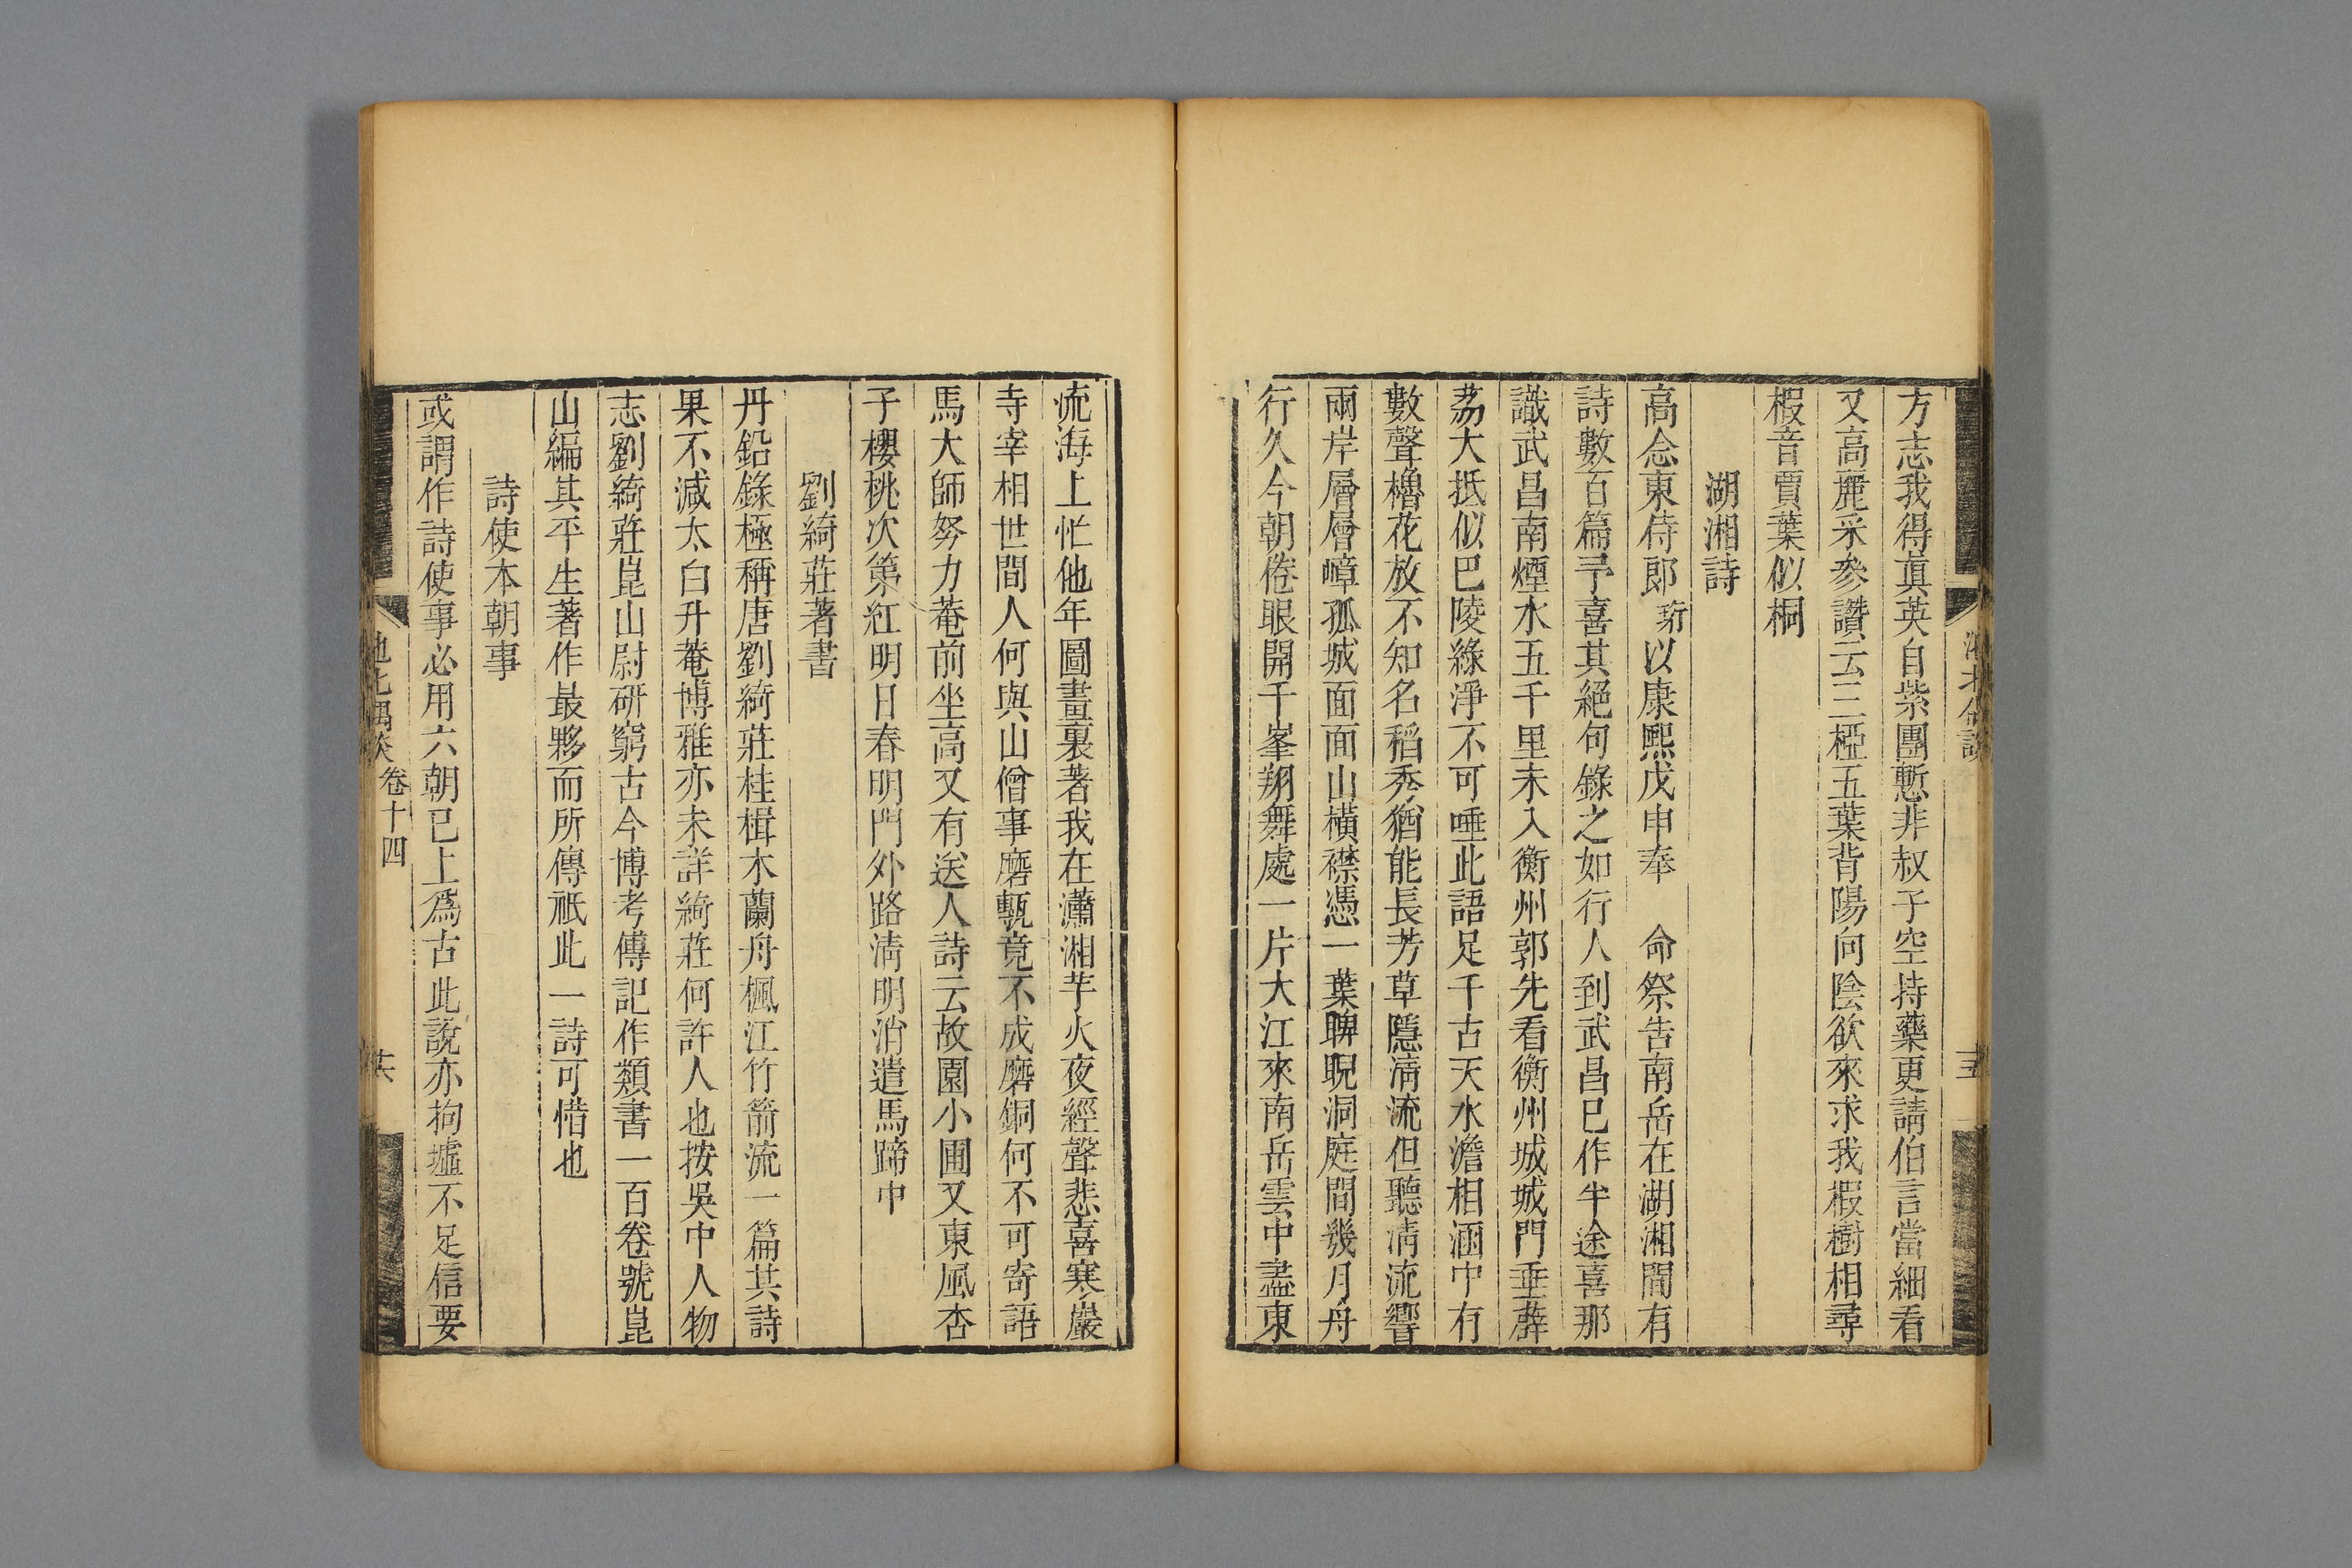 方志我得真英自紫團慙非叔子空持藥更請伯言當細看
又高麗采參讚云三椏五葉背陽向陰欲來求我椵樹相尋
椵音賈葉似桐
湖湘詩
高念東侍郎珩以康熙戊申奉 命祭告南岳在湖湘間有
詩數百篇予喜其絕句錄之如行人到武昌已作半途喜那
識武昌南煙水五千里未入衡州郭先看衡州城城門垂薜
荔大抵似巴陵綠淨不可唾此語足千古天水澹相涵中有
數聲櫓花放不知名稻秀猶能長芳草隱淸流但聽淸流響
兩岸層層嶂孤城面面山橫襟憑一葉睥睨洞庭間幾月舟
行久今朝倦眼開千峯翔舞處一片大江來南岳雲中盡東
流海上忙他年圖畫裏著我在瀟湘芋火夜經聲悲喜寒巖
寺宰相世間人何與山僧事磨甎竟不成磨銅何不可寄語
馬大師努力菴前坐高又有送人詩云故園小圃又東風杏
子櫻桃次第紅明日春明門外路淸明消遣馬蹄中
劉綺莊著書
丹鉛錄極稱唐劉綺莊桂楫木蘭舟楓江竹箭流一篇其詩
果不減太白升菴博雅亦未詳綺莊何許人也按吳中人物
志劉綺莊崑山尉研窮古今博考傳記作類書一百卷號崑
山編其平生著作最夥而所傳祇此一詩可惜也
詩使本朝事
或謂作詩使事必用六朝已上爲古此說亦拘墟不足信要
池北偶談 卷十四 六